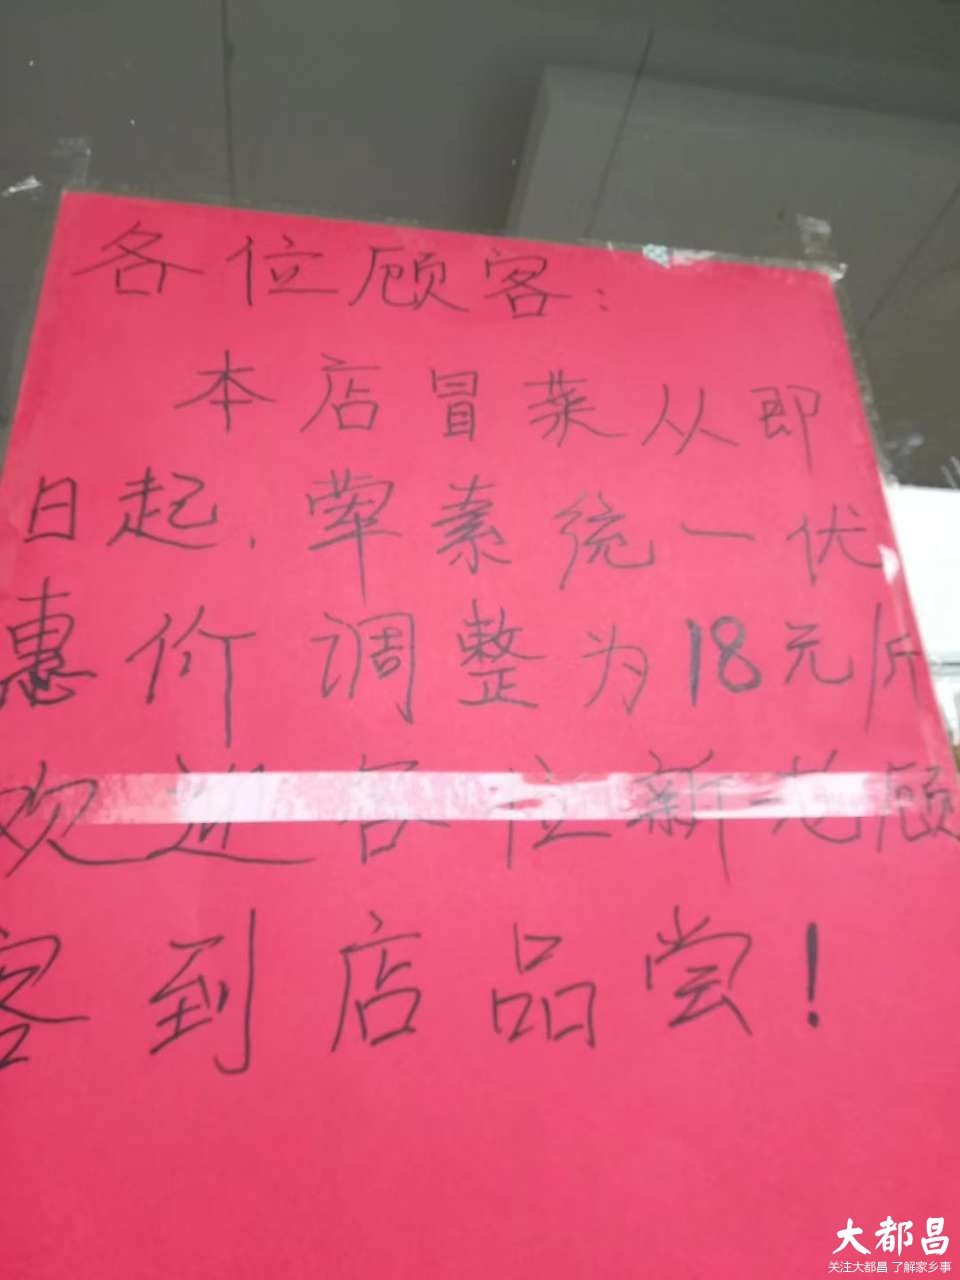 各位顾客：
本店冒菜从即
日起，荤素统一优
惠价调整为18元/斤
欢迎各位新老顾
客到店品尝！
大都昌
关注大都昌 了解家乡事